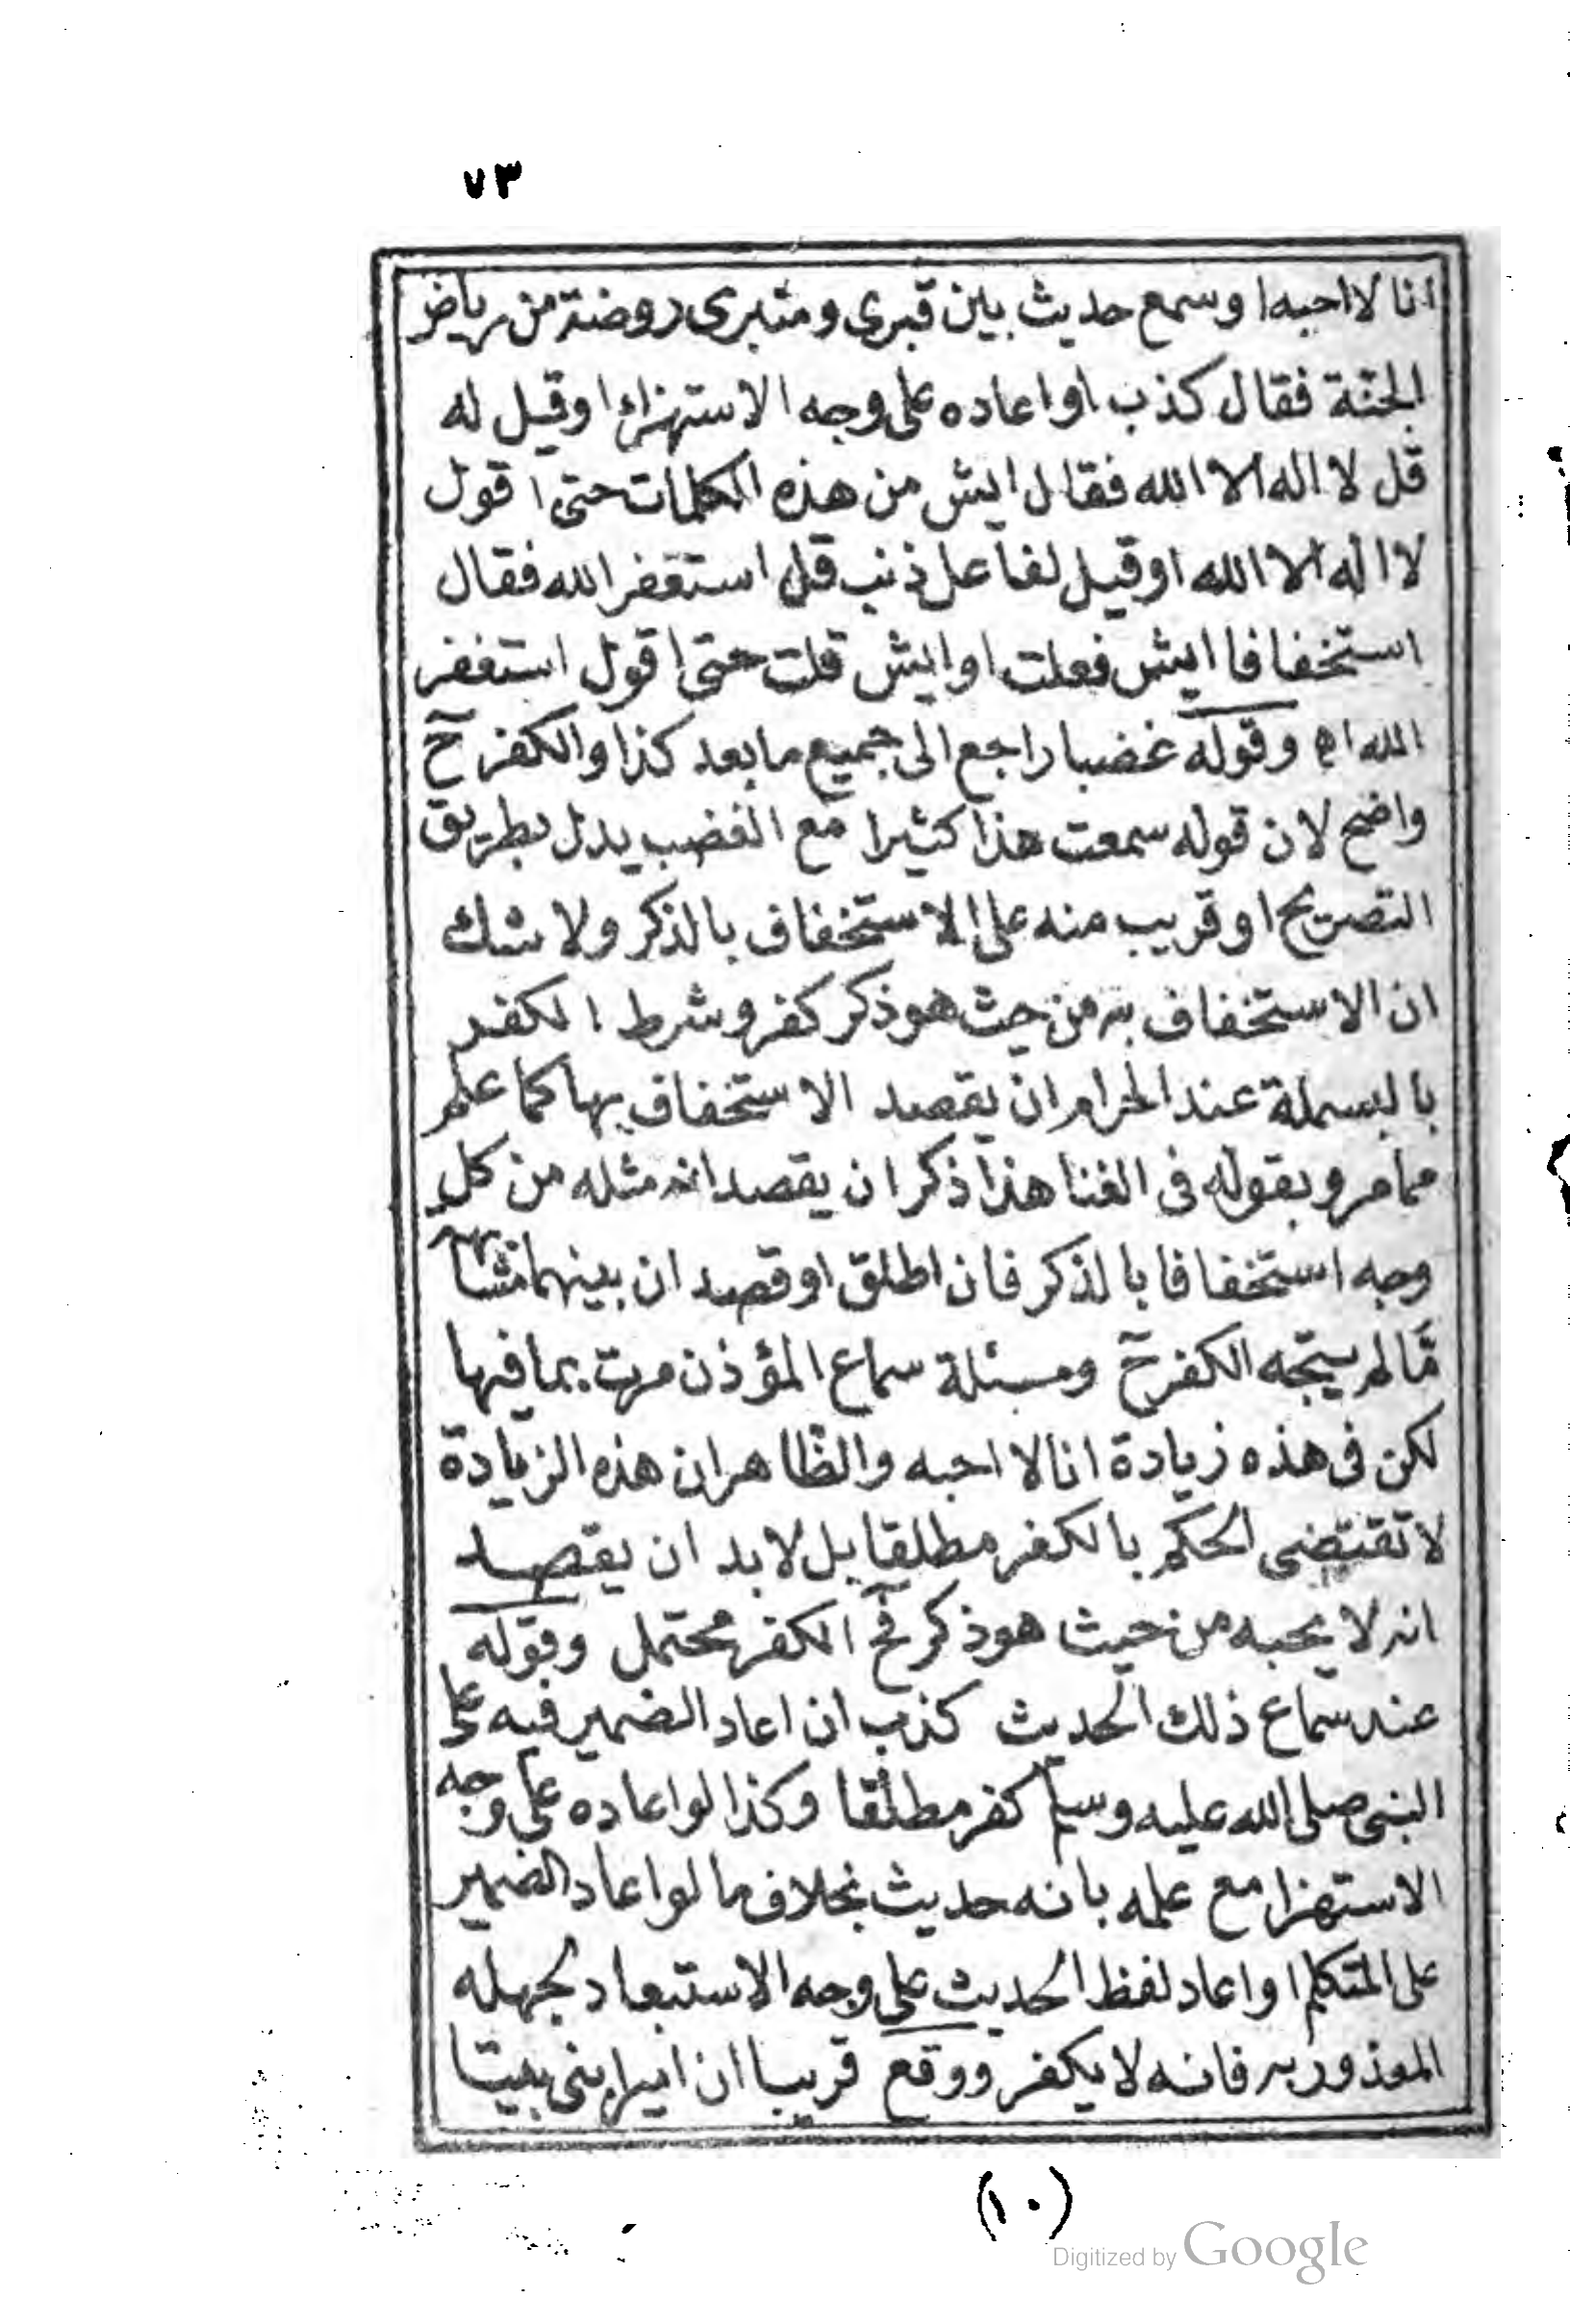 ٧٣
انا لا احبه او سمع حديث بين قبرى ومنبرى روضة من رياض
الجنة فقال كذب او اعاده على وجه الاستهزاء او قيل له
قل لا اله الا الله فقال ايش من هذه الكلمات حتى اقول
لا اله الا الله او قيل لفاعل ذنب قل استغفر الله فقال
استخفافا ايش فعلت او ايش قلت حتى اقول استغفر
الله اه وقوله غضبا راجع الى جميع ما بعد كذا والكفر ح
واضح لان قوله سمعت هذا كثيرا مع الغضب يدل بطريق
التصريح او قريب منه على الاستخفاف بالذكر ولا شك
ان الاستخفاف به من حيث هو ذكر كفر وشرط الكفر
بالبسملة عند الحرام ان يقصد الاستخفاف بها كما علم
مما مر وبقوله فى الغنا هذا ذكر ان يقصد انه مثله من كل
وجه استخفافا بالذكر فان اطلق او قصد ان بينهما مشابهة
مّا لم يتجه الكفر ح ومسئلة سماع المؤذن مرت بما فيها
لكن فى هذه زيادة انا لا احبه والظاهر ان هذه الزيادة
لا تقتضى الحكم بالكفر مطلقا بل لا بد ان يقصد
انه لا يحبه من حيث هو ذكر فح الكفر محتمل وقوله
عند سماع ذلك الحديث كذب ان اعاد الضمير فيه على
النبى صلى الله عليه وسلم كفر مطلقا وكذا لو اعاده على وجه
الاستهزا مع علمه بانه حديث بخلاف ما لو اعاد الضمير
على المتكلم او اعاد لفظ الحديث على وجه الاستبعاد لجهله
المعذور به فانه لا يكفر ووقع قريبا ان اميرا بنى بيتا
(١٠)
Digitized by Google